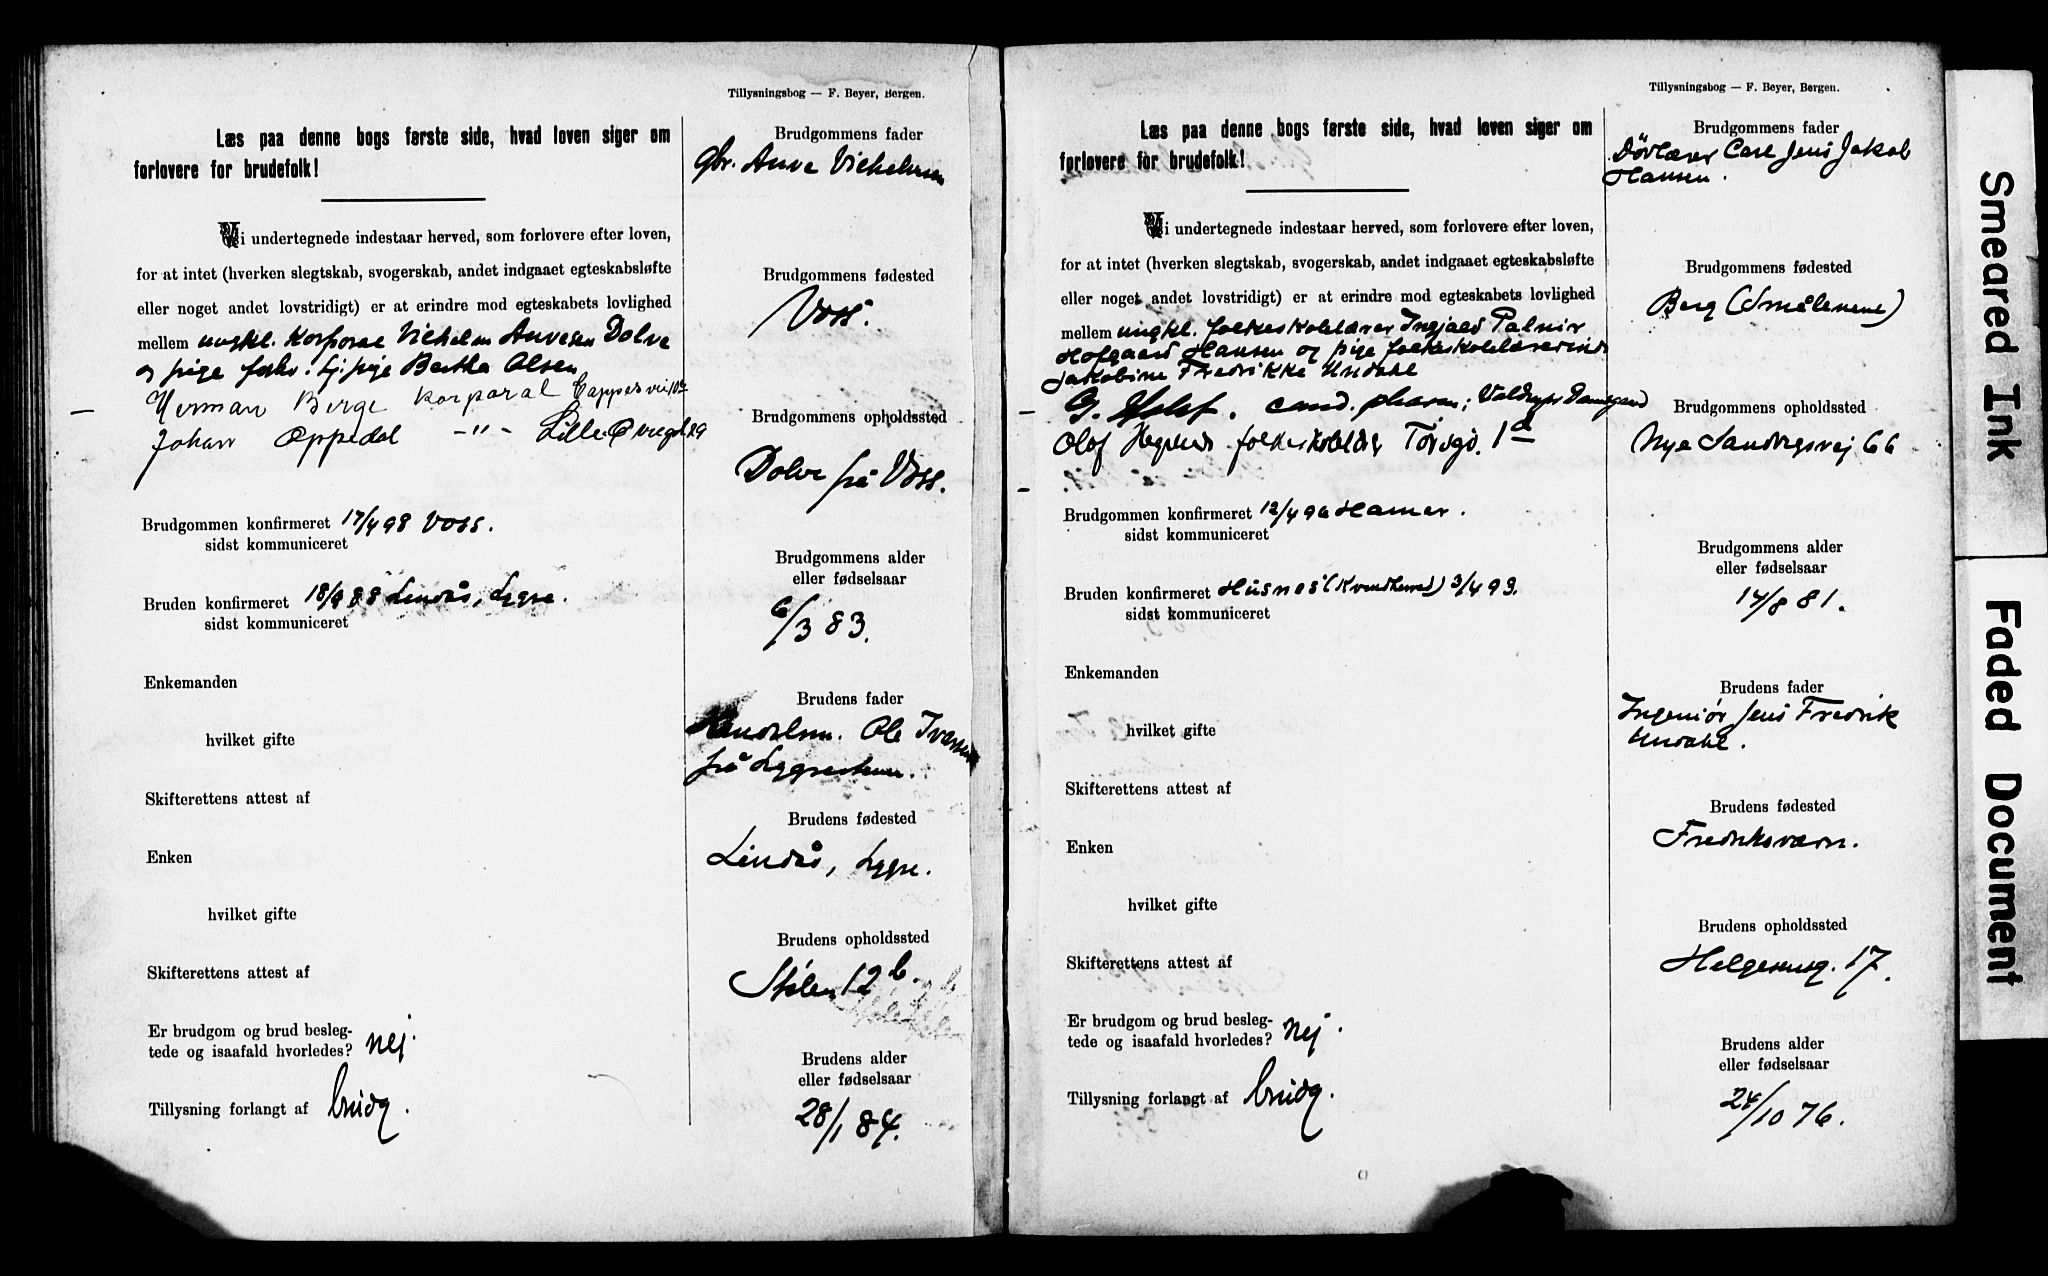 Tillysningsbog — F. Beyer, Bergen.
Læs paa denne bogs første side, hvad loven siger om
forlovere for brudefolk!
Vi undertegnede indestaar herved, som forlovere efter loven,
for at intet (hverken slegtskab, svogerskab, andet indgaaet egteskabsløfte
eller noget andet lovstridigt) er at erindre mod egteskabets lovlighed
mellem ungkl. Korporal Vilhelm Anvesen Dolve
og pige forhv. tj.pige Bertha Olsen
Herman Berge Korporal
Johan Oppedal —"— Lille 29
Brudgommen konfirmeret 17/4 98 Voss.
sidst kommuniceret
Bruden konfirmeret 18/9 88 Lindås, Lygre.
sidst kommuniceret
Enkemanden
hvilket gifte
Skifterettens attest af
Enken
hvilket gifte
Skifterettens attest af
Er brudgom og brud besleg-
tede og isaafald hvorledes? nej.
Tillysning forlangt af brudg.
Brudgommens fader
Gbr. Anve Vilhelmsen
Brudgommens fødested
Voss.
Brudgommens opholdssted
Dolve på Voss.
Brudgommens alder
eller fødselsaar
6/3 83.
Brudens fader
Handelsm. Ole Iversen
på Lygrestenen.
Brudens fødested
Lindås, Lygre.
Brudens opholdssted
Stølen 12 b.
Brudens alder
eller fødselsaar
28/1 84.
Tillysningsbog — F. Beyer, Bergen.
Læs paa denne bogs første side, hvad loven siger om
forlovere for brudefolk!
Vi undertegnede indestaar herved, som forlovere efter loven,
for at intet (hverken slegtskab, svogerskab, andet indgaaet egteskabsløfte
eller noget andet lovstridigt) er at erindre mod egteskabets lovlighed
mellem ungkl. folkeskolelærer Ingjald Palnir
Hofgaard Hansen og pige folkeskolelærerinde
Jakobine Fredrikke Undahl
G. cand. pharm;
Olof folkeskolelær Torvgd. 1 a
Brudgommen konfirmeret 12/4 96 Hamar.
sidst kommuniceret
Bruden konfirmeret Husnes (Kvindherred) 3/4 93.
sidst kommuniceret
Enkemanden
hvilket gifte
Skifterettens attest af
Enken
hvilket gifte
Skifterettens attest af
Er brudgom og brud besleg-
tede og isaafald hvorledes? nej.
Tillysning forlangt af brudg.
Brudgommens fader
Døvlærer Carl Jens Jakob
Hansen.
Brudgommens fødested
Berg (Smålenene)
Brudgommens opholdssted
Nye Sandvigsvej 66
Brudgommens alder
eller fødselsaar
17/8 81.
Brudens fader
Ingeniør Jens Fredrik
Undahl.
Brudens fødested
Fredriksværn.
Brudens opholdssted
Helgesensg. 17.
Brudens alder
eller fødselsaar
24/10 76.
Smeared Ink
Faded Document